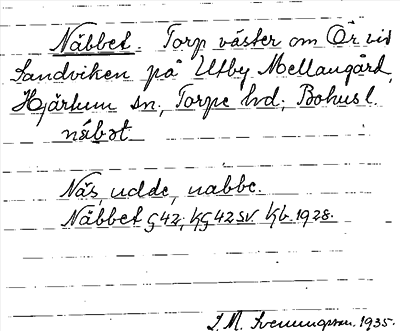 Näbbet. Torp väster om Ör vid
Sandviken på Utby Mellangård,
Hjärtum sn, Torpe hd; Bohusl.
näbət
Näs, udde, nabbe.
Näbbet G42; KG42SV Kb. 1928.
S. M. Svenungsson. 1935.